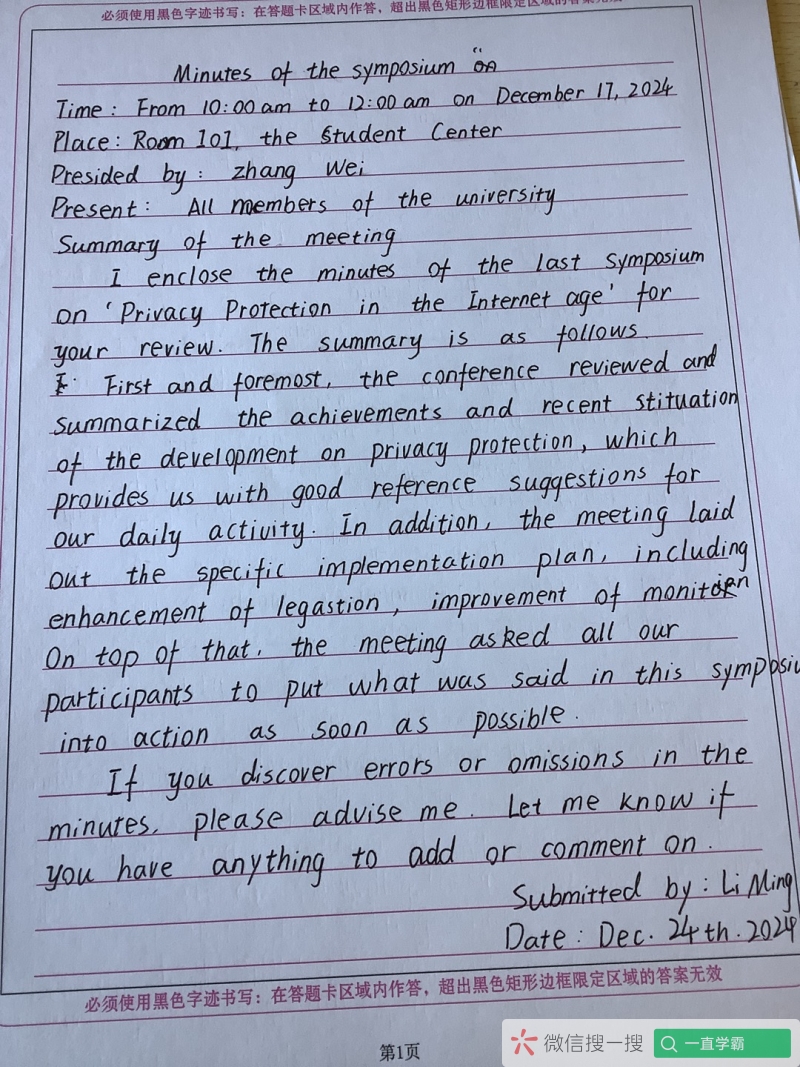 必须使用黑色字迹书写：在答题卡区域内作答，超出黑色矩形边框限定区域的答案无效
Minutes of the symposium
Time: From 10:00 am to 12:00 am on December 17, 2024
Place: Room 101, the Student Center
Presided by: zhang Wei
Present: All members of the university
Summary of the meeting
I enclose the minutes of the last symposium
on 'Privacy Protection in the Internet age' for
your review. The summary is as follows.
First and foremost, the conference reviewed and
summarized the achievements and recent stituation
of the development on privacy protection, which
provides us with good reference suggestions for
our daily activity. In addition, the meeting laid
out the specific implementation plan, including
enhancement of legastion, improvement of
On top of that, the meeting asked all our
participants to put what was said in this symposiu
into action as soon as possible.
If you discover errors or omissions in the
minutes, please advise me. Let me know if
you have anything to add or comment on.
Submitted by: Li Ming
Date: Dec. 24th. 2024
必须使用黑色字迹书写：在答题卡区域内作答，超出黑色矩形边框限定区域的答案无效
第1页
微信搜一搜
一直学霸